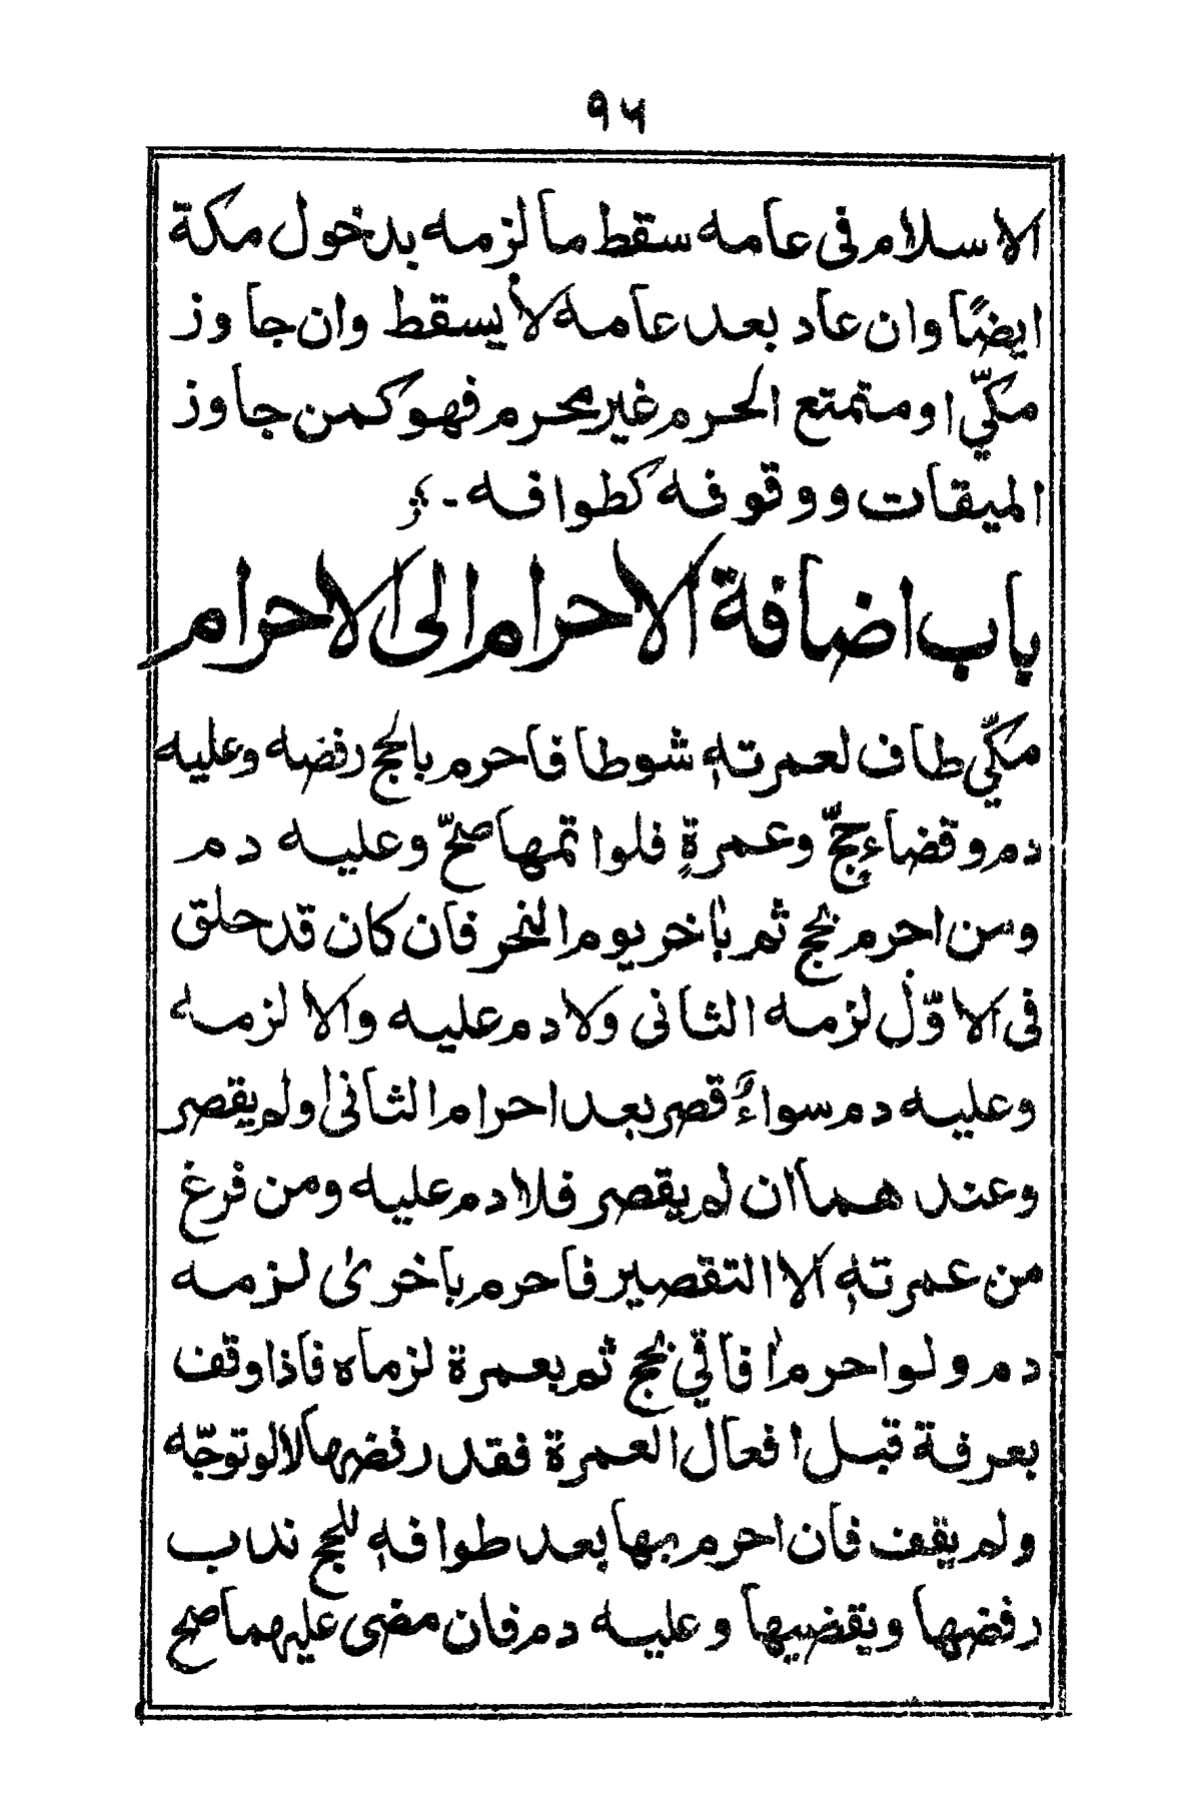 ۹۶
الاسلام فى عامه سقط ما لزمه بدخول مكة
ايضًا وان عاد بعد عامه لا يسقط وان جاوز
مكّي او متمتع الحرم غير محرم فهو كمن جاوز
الميقات ووقوفه كطوافه -
باب اضافة الاحرام الى الاحرام
مكّي طاف لعمرتهٖ شوطا فاحرم بالحج رفضه وعليه
دم وقضاء حجّ وعمرةٍ فلو اتمها صحّ وعليه دم
ومن احرم بحج ثم باٰخر يوم النحر فان كان قد حلق
فى الاوّل لزمه الثانى ولا دم عليه والا لزمه
وعليه دم سواءٌ قصر بعد احرام الثانى او لم يقصر
وعندهما ان لم يقصر فلا دم عليه ومن فرغ
من عمرتهٖ الا التقصير فاحرم باخرىٰ لزمه
دم ولو احرم اٰفاقي بحج ثم بعمرة لزماه فاذا وقف
بعرفة قبل افعال العمرة فقد رفضها لا لو توجّه
ولم يقف فان احرم بها بعد طوافهٖ للحج ندب
رفضها ويقضيها وعليه دم فان مضى عليهما صح